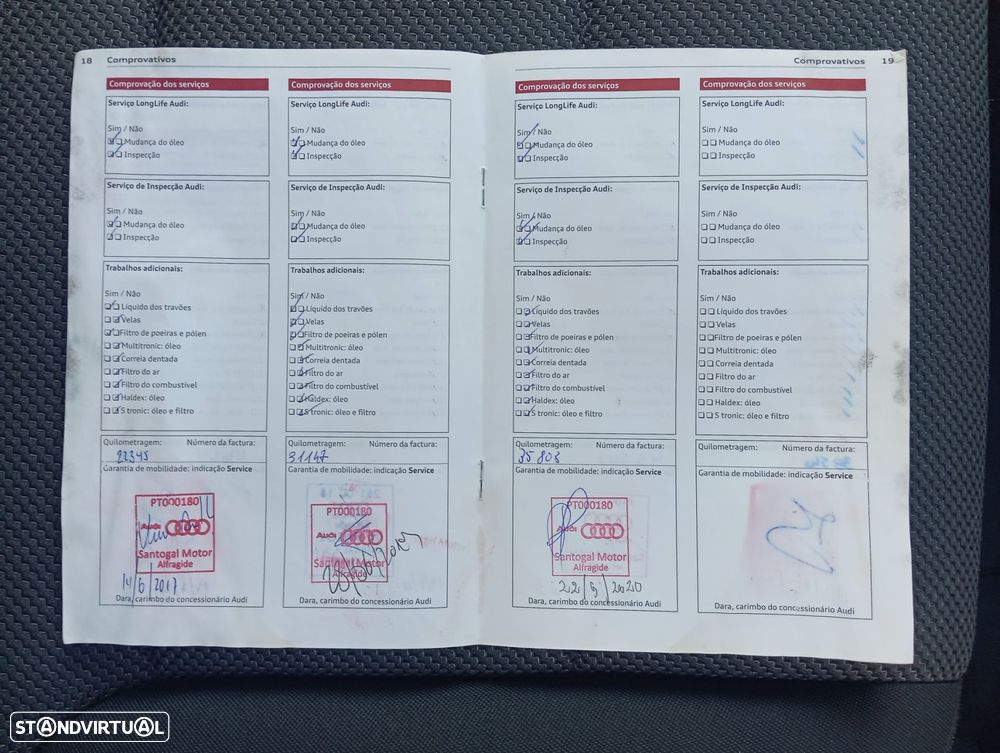 18 Comprovativos
Comprovação dos serviços
Serviço LongLife Audi:
Sim / Não
Mudança do óleo
Inspecção
Serviço de Inspecção Audi:
Sim / Não
Mudança do óleo
Inspecção
Trabalhos adicionais:
Sim / Não
Líquido dos travões
Velas
Filtro de poeiras e pólen
Multitronic: óleo
Correia dentada
Filtro do ar
Filtro do combustível
Haldex: óleo
S tronic: óleo e filtro
Quilometragem: Número da factura:
22345
Garantia de mobilidade: indicação Service
PT000180
Audi
Santogal Motor
Alfragide
14/6/2017
Dara, carimbo do concessionário Audi
Comprovação dos serviços
Serviço LongLife Audi:
Sim / Não
Mudança do óleo
Inspecção
Serviço de Inspecção Audi:
Sim / Não
Mudança do óleo
Inspecção
Trabalhos adicionais:
Sim / Não
Líquido dos travões
Velas
Filtro de poeiras e pólen
Multitronic: óleo
Correia dentada
Filtro do ar
Filtro do combustível
Haldex: óleo
S tronic: óleo e filtro
Quilometragem: Número da factura:
31147
Garantia de mobilidade: indicação Service
PT000180
Audi
Santogal Motor
Alfragide
Dara, carimbo do concessionário Audi
Comprovativos 19
Comprovação dos serviços
Serviço LongLife Audi:
Sim / Não
Mudança do óleo
Inspecção
Serviço de Inspecção Audi:
Sim / Não
Mudança do óleo
Inspecção
Trabalhos adicionais:
Sim / Não
Líquido dos travões
Velas
Filtro de poeiras e pólen
Multitronic: óleo
Correia dentada
Filtro do ar
Filtro do combustível
Haldex: óleo
S tronic: óleo e filtro
Quilometragem: Número da factura:
35 803
Garantia de mobilidade: indicação Service
PT000180
Audi
Santogal Motor
Alfragide
22/5/2020
Dara, carimbo do concessionário Audi
Comprovação dos serviços
Serviço LongLife Audi:
Sim / Não
Mudança do óleo
Inspecção
Serviço de Inspecção Audi:
Sim / Não
Mudança do óleo
Inspecção
Trabalhos adicionais:
Sim / Não
Líquido dos travões
Velas
Filtro de poeiras e pólen
Multitronic: óleo
Correia dentada
Filtro do ar
Filtro do combustível
Haldex: óleo
S tronic: óleo e filtro
Quilometragem: Número da factura:
Garantia de mobilidade: indicação Service
Dara, carimbo do concessionário Audi
STANDVIRTUAL